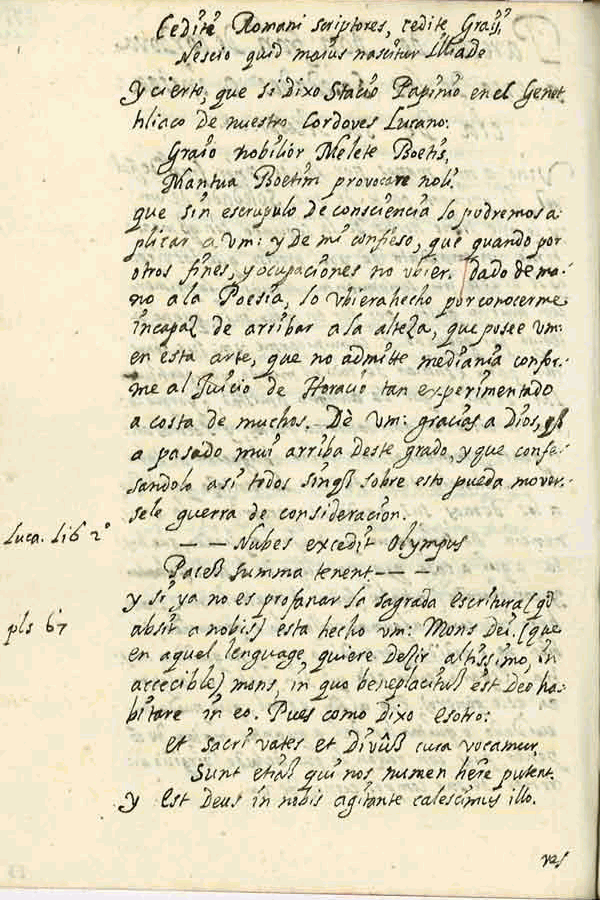 Cedite Romani scriptores, cedite Graij,
Nescio quid maius nascitur Illiade
Y cierto, que si dixo Stacio Papinio en el Genet
hliaco de nuestro Cordoves Lucano:
Graio nobilior Melete Boetis,
Mantua Boetim provocare noli.
que sin escrupulo de consciencia lo podremos a
plicar a Vm: y de mi confieso, que quando por
otros fines, y ocupaciones no vbier. dado de ma-
no a la Poesia, lo vbiera hecho por conocerme
incapaz de arribar a la alteza, que posee Vm:
en esta arte, que no admitte mediania confor-
me al Juicio de Horacio tan experimentado
a costa de muchos. Dè Vm: gracias a Dios, q̃
a pasado mui arriba deste grado, y que confe-
sandolo asi todos sin q̃ sobre esto pueda mover-
sele guerra de consideracion.
Luca. lib 2º
— — Nubes excedit Olympus
Pacẽ summa tenent — — —
y si ya no es profanar la sagrada escritura (qd̃
pls 67
absit a nobis) esta hecho vm: Mons Dei. (que
en aquel lenguage quiere decir altissimo, in
accecible) mons, in quo beneplacitũ est Deo ha-
bitare in eo. Pues como dixo esotro:
et sacri vates et Divũ cura vocamur,
Sunt etiã qui nos numen hẽre putent.
y Est Deus in nobis agitante calescimus illo.